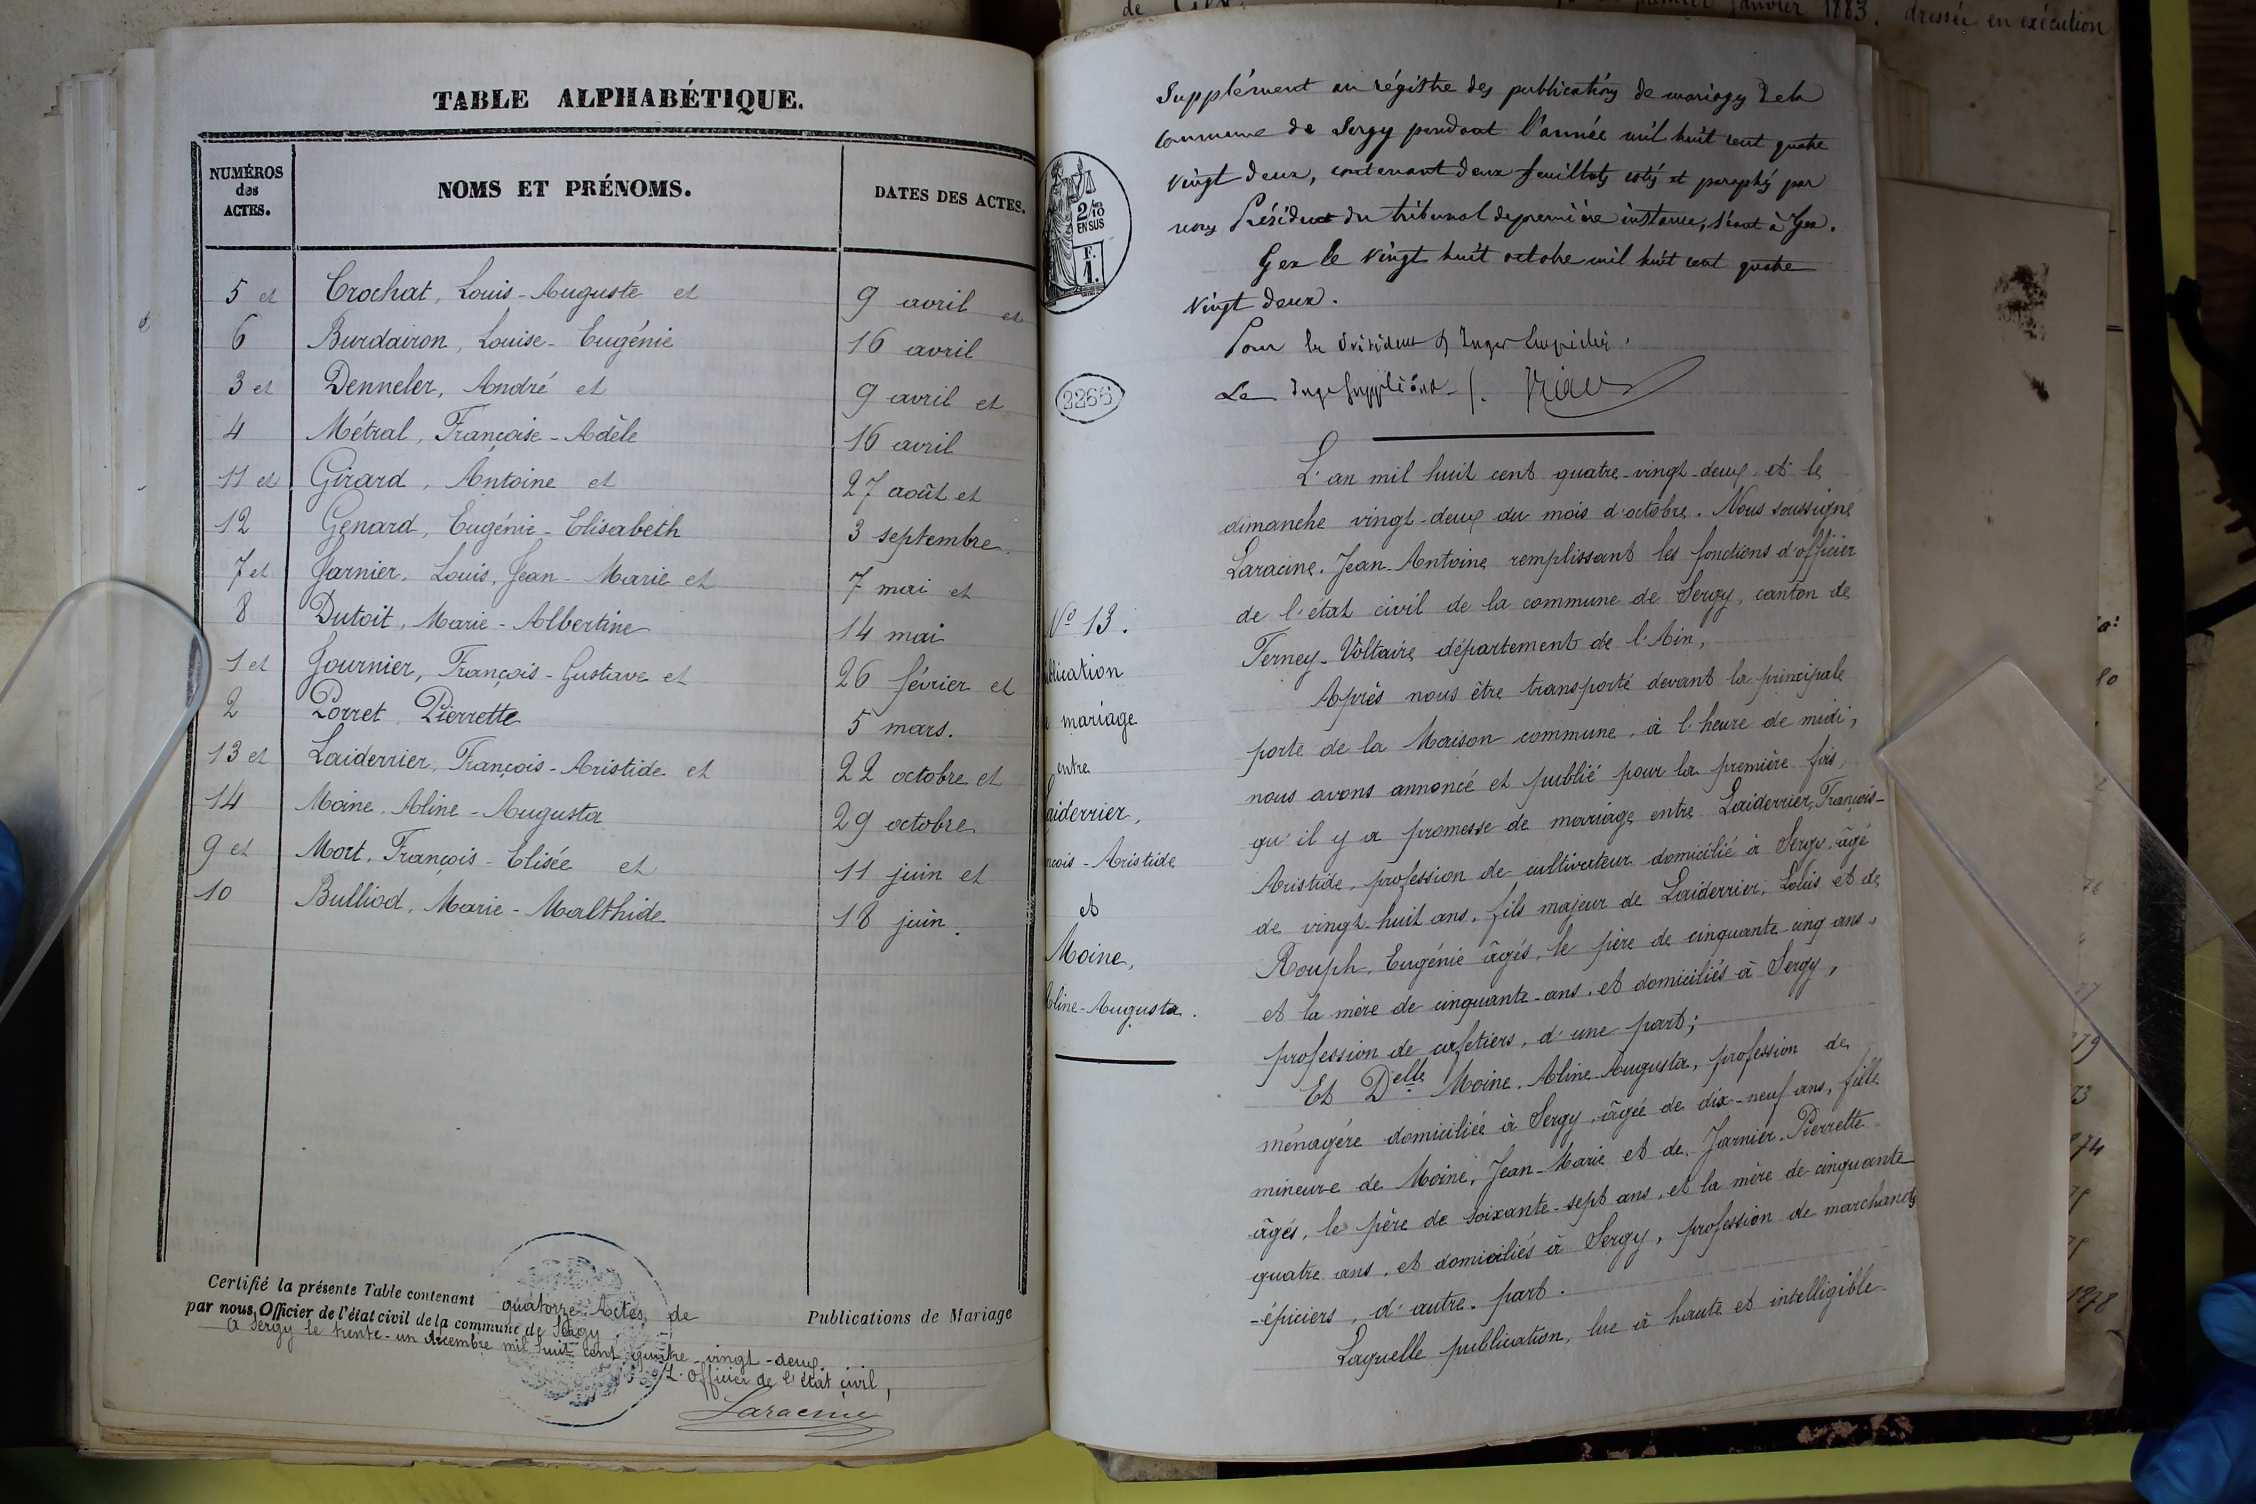 TABLE ALPHABÉTIQUE.
NUMÉROS
des
ACTES.
NOMS ET PRÉNOMS.
DATES DES ACTES.
5 et Crochat, Louis-Auguste et 9 avril et
6 Burdairon, Louise-Eugénie 16 avril
3 et Denneler, André et 9 avril et
4 Métral, Françoise-Adèle 16 avril
11 et Girard, Antoine et 27 août et
12 Genard, Eugénie-Elisabeth 3 septembre.
7 et Jarnier, Louis, Jean-Marie et 7 mai et
8 Dutoit, Marie-Albertine 14 mai
1 et Journier, François-Gustave et 26 février et
2 Porret, Pierrette 5 mars.
13 et Laiderrier, François-Aristide et 22 octobre et
14 Moine, Aline-Augusta 29 octobre
9 et Mort, François-Elisée et 11 juin et
10 Bulliod, Marie-Malthide 18 juin.
Certifié la présente Table contenant quatorze Actes de Publications de Mariage
par nous, Officier de l'état civil de la commune de Sergy
A Sergy le trente-un décembre mil huit cent quatre-vingt-deux.
L'officier de l'état civil,
Laracine
de Gex, premier janvier 1883. dressée en exécution
Supplément au régistre des publications de mariages de la
commune de Sergy pendant l'année mil huit cent quatre
vingt deux, contenant deux feuillets cotés et paraphés par
nous Président du tribunal de première instance, séant à Gex.
Gex le vingt huit octobre mil huit cent quatre
vingt deux.
Pour le Président
Le Juge Suppléant
2/10
EN SUS
F.
1.
2266
No 13.
ublication
mariage
entre
aiderrier,
nçois-Aristide
et
Moine,
Aline-Augusta.
L'an mil huit cent quatre-vingt-deux et le
dimanche vingt-deux du mois d'octobre. Nous soussigné
Laracine. Jean-Antoine remplissant les fonctions d'officier
de l'état civil de la commune de Sergy, canton de
Ferney-Voltaire département de l'Ain,
Après nous être transporté devant la principale
porte de la Maison commune, à l'heure de midi,
nous avons annoncé et publié pour la première fois,
qu'il y a promesse de mariage entre Laiderrier, François-
Aristide, profession de cultivateur domicilié à Sergy, âgé
de vingt-huit ans, fils majeur de Laiderrier, Louis et de
Rouph, Eugénie âgés, le père de cinquante-cinq ans,
et la mère de cinquante-ans, et domiciliés à Sergy,
profession de cafetiers, d'une part;
Et Delle Moine, Aline-Augusta, profession de
ménagère domiciliée à Sergy, âgée de dix-neuf ans, fille
mineure de Moine, Jean-Marie et de Jarnier, Pierrette
âgés, le père de soixante-sept ans, et la mère de cinquante
quatre ans, et domiciliés à Sergy, profession de marchands
-épiciers, d'autre part.
Laquelle publication, lue à haute et intelligible